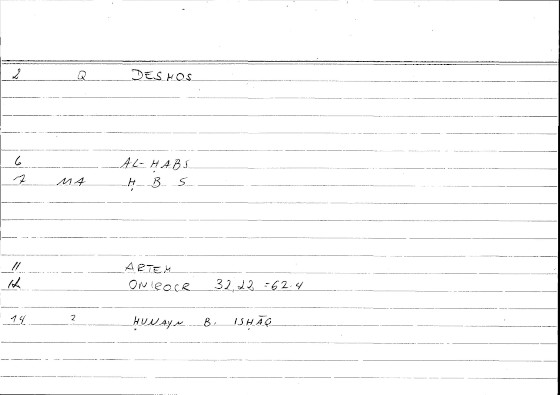 2 Q DESMOS
6 AL-ḤABS
7 MA Ḥ B S
11 ARTEM
12 ONIROCR 32,22 = 62.4
14 2 ḤUNAYN B. ISḤĀQ